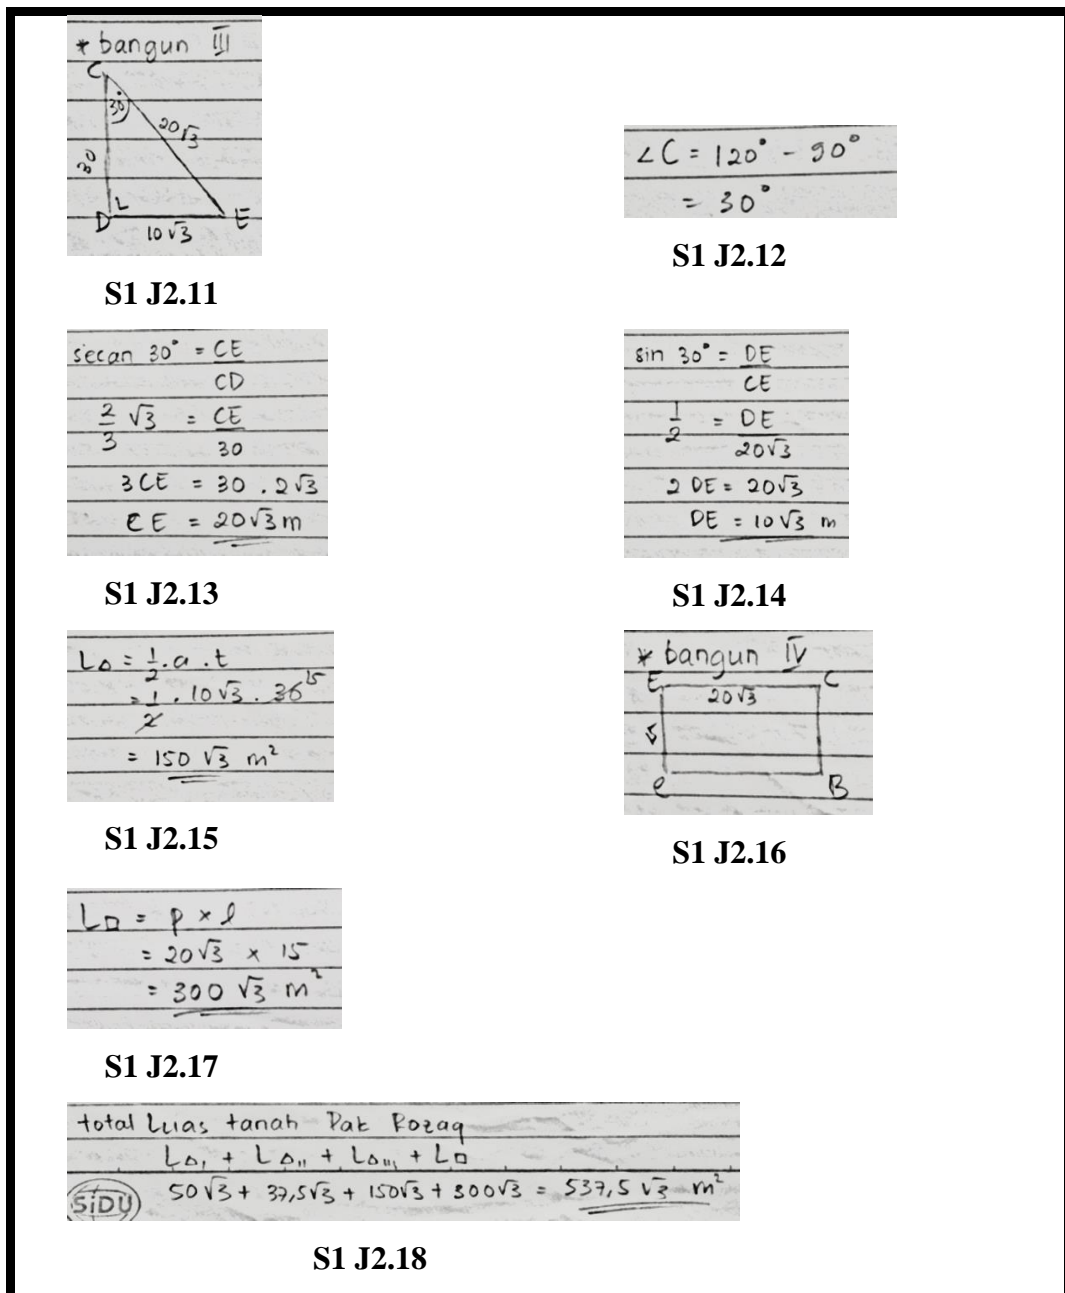 * bangun III
C
30°
20√3
30
D
E
10√3
S1 J2.11
∠C = 120° - 90°
= 30°
S1 J2.12
secan 30° = CE
CD
2/3 √3 = CE
30
3CE = 30 . 2√3
CE = 20√3 m
S1 J2.13
sin 30° = DE
CE
1/2 = DE
20√3
2 DE = 20√3
DE = 10√3 m
S1 J2.14
L△ = 1/2 . a . t
= 1/2 . 10√3 . 30 15
= 150 √3 m²
S1 J2.15
* bangun IV
E C
20√3
B
S1 J2.16
L□ = p x l
= 20√3 x 15
= 300 √3 m²
S1 J2.17
total Luas tanah Pak Rozaq
L△I + L△II + L△III + L□
SiDU 50√3 + 37,5√3 + 150√3 + 300√3 = 537,5 √3 m²
S1 J2.18